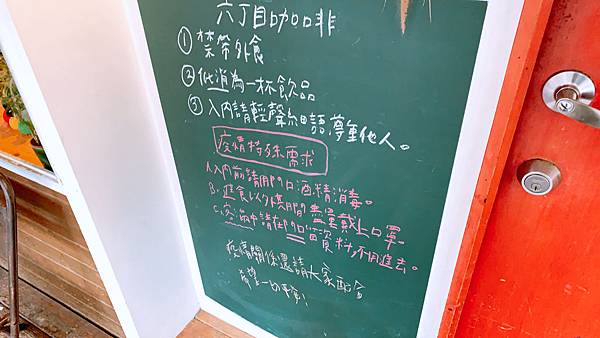 六丁目咖啡
① 禁帶外食
② 低消為一杯飲品
③ 入內請輕聲細語,尊重他人。
疫情特殊需求
A.入內前請用門口酒精消毒。
B.進食以外時間無要戴上口罩。
C.請在門口留資料,不用進去。
疫情關係還請大家配合
希望一切平安!